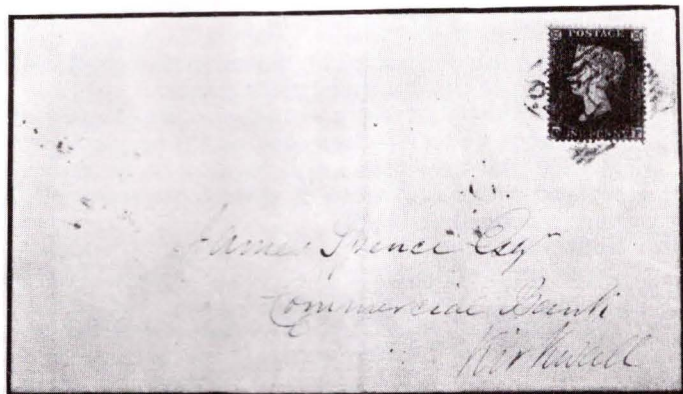 POSTAGE
James Spence Esq
Commercial Bank
Kirkwall